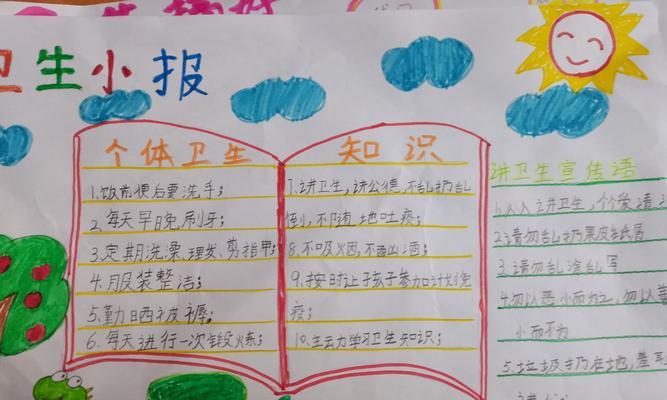 卫生小报
个体卫生
1.饭前便后要洗手;
2.每天早日免刷牙;
3.定期洗澡、理发、剪指甲;
4.服装整洁;
5.勤日西衤皮褥;
6.每天进行一次锻炼;
知识
7.讲卫生,讲公德,不乱扔乱
倒,不随地吐痰;
8.不吸烟,不酗酒;
9.按时让孩子参加计划免
疫;
10.主云力学习卫生知识;
讲卫生宣传语
1.人人讲卫生,个个爱清
2.请勿乱扔果皮纸屑
3.请勿乱涂乱写
4.勿以恶小而为之,勿以善
小而不为
5.垃圾扔在地,羞耳